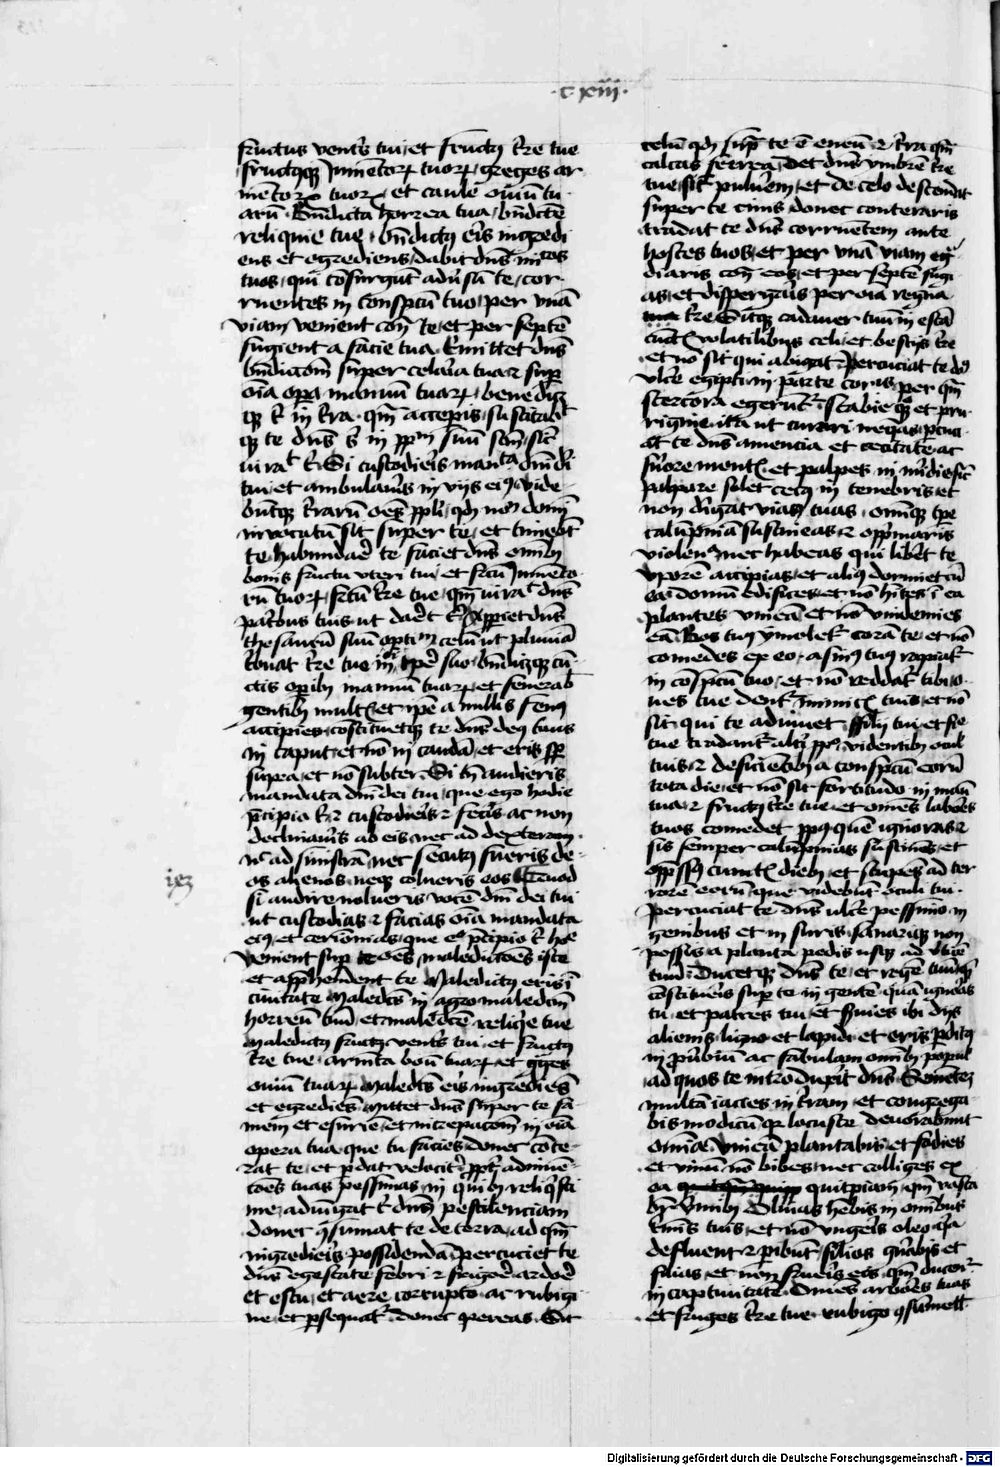 ·cxiii·
fructus ventris tui et fructus tre tue
fructusque iumentorum tuorum greges ar
mentorum tuorum et caule ouiu tu
aru. Bndicta horrea tua bndicte
reliquie tue bndictus eris ingredi
ens et egrediens dabit dns inicos
tuos qui cosurgut adusu te cor
ruentes in conspcu tuo per vna
viam venient con te et per septe
fugient a facie tua. Emittet dns
bndictom super celaria tua et sup
oia opera manuu tuar benedicz
que t in tra qm acceps suscitabt
que te dns s in pplm suu scm sic
iurat t Si custodieris manta dni di
tui et ambulaueris in viis eius vide
buntque trarum oes ppli qd nom domi
inuocatum sit super te et timebt
te habundare te faciet dns omib
bonis fructu vteri tui et fructu iumeto
ru tuor fructu tre tue qm iurat dns
patribus tuis ut daret t Apperiet dns
thesauru suu optim celu ut pluuia
tribuat tre tue in tpe suo bndicetque cu
ctis operib manuu tuar et fenerab
gentib mult et ipe a nullis fenus
accipies costituetque te dns deus tuus
in caput et no in cauda et eris sp
supra et no subter Si tn audieris
mandata dni dei tui que ego hodie
precipio t et custodieris et feceris ac non
declinaueris ab eis nec ad dexteram
nec ad sinistra nec secutus fueris de
os alienos neque colueris eos Quod
si audire nolueris voce dni dei tui
ut custodias et facias oia mandata
eius et cerimonias que ego precipio t hodie
venient sup te oes maledictoes iste
et apphendent te Maledictus eris i
ciuitate Maledcts in agro maledcm
horreu tuu et maledcte reliquie tue
Maledictus fructus ventris tui et fructus
tre tue armta bou tuar et greges
ouiu tuar Maledcts eris ingredies
et egredies Mittet dns super te fa
mem et esurie et increpacom in oia
opera tua que tu facies donec cote
rat te et perdat velociter ppter adinue
coes tuas pessimas in quib reliquisti
me adiungat t dns pestilenciam
donec consumat te de terra ad qm
ingredieris possidenda Percuciet te
dns egestate febri et frigore ardore
et estu et aere corrupto ac rubigi
ne et persequat donec pereas. Sit
celu qd sup te e eneu et tra qm
calcas ferrea Det dns ymbre tre
tue sit puluerem et de celo descendat
super te cinis donec conteraris
tradat te dns corruentem ante
hostes tuos et per vna viam egr
diaris con eos et per septe fugi
as et dispergaris per oia regna
tre Sitque cadauer tuu in esca
cunct volatilibus celi et bestiis tre
et no sit qui abigat Percuciat te dns
vlce egipti in parte corpis per qm
stercora egerunt scabie que et pru
rigine ita ut curari nequeas percuci
at te dns amencia et cecitate ac
furore ment et palpes in meridie sic
palpare solet cecus in tenebris et
non dirigat vias tuas omique tpe
calupniam sustineas et opprimaris
violen nec habeas qui liberet te
Vxore accipias et alius dormiet cu
ea domu edifices et no hites i ea
plantes vinea et no vindemies
ea Bos tuus ymolet cora te et no
comedes ex eo asinus tuus rapiat
in cospcu tuo et no reddat tibi o
ues tue dent inimic tuis et no
sit qui te adiuuet filii tui et filie
tue tradant alti pplo videntib ocul
tuis et deficietib a conspcu eoru
tota die et no sit fortitudo in manu
tua et fructus tre tue et omnes labores
tuos comedet pplus que ignoras et
sis semper calupnias sustines et
oppressus cunct dieb et stupes ad ter
rore eoru que videbut oculi tui
Percuciat te dns vlce pessimo in
genibus et in suris sanarique non
possis a planta pedis usque ad vtice
tuu Ducetque dns te et rege tuuque
constitueris sup te in gente qua ignoras
tu et patres tui et seruies ibi diis
alienis ligno et lapidi et eris perditus
in prouerbiu ac fabulam omib popul
ad quos te introduxerit dns Semente
multa iacies in tram et congrega
bis modicu quia locuste deuorabunt
omnia Vinea plantabis et fodies
et vinu no bibes nec colliges ex
ea quitpiam qm vasta
bitur vermib Oliuas hebis in omibus
trmis tuis et no vngeris oleo quia
defluent et peribut filios gnabis et
filias et non frueris eis qm ducent
in captiuitate Omes arbores tuas
et fruges tre tue rubigo consumet